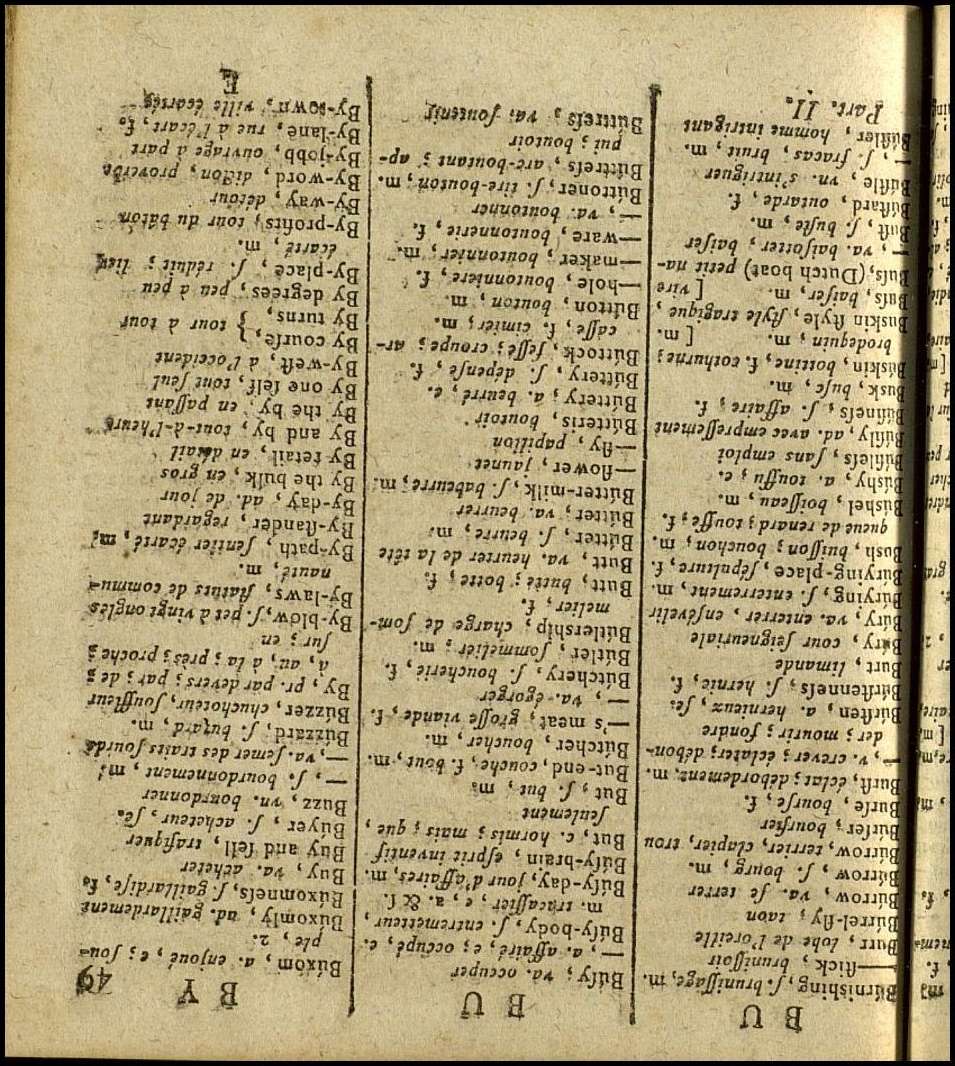 B U
Búrniſhing, ſ. bruniſſage, m.
——ſtick, bruniſſoir
Burr, lobe de l'oreille
Búrrel-fly; taon
Búrrow, va. ſe terrer
Búrrow, ſ. bourg, m.
Búrrow, terrier, clapier, trou
Búrſer, bourſier
Burſe, bourſe, f.
Burſt, éclat; débordement, m.
—, v. crever; éclater; débon-
der; mourir; fondre
Búrſten, a. hernieux, ſe.
Búrſtenneſs, ſ. hernie, f.
Burt, limande
Búry, cour ſeigneuriale
Búry, va. enterrer, enſévelir
Búrying, ſ. enterrement, m.
Búrying-place, ſépulture, f.
Bush, buiſſon; bouchon, m.
queue de renard; touffe, f.
Búshel, boiſſeau, m.
Búshy, a. touffu, e.
Búſileſs, ſans emploi
Búſily, ad. avec empreſſement
Búſineſs, ſ. affaire, f.
Busk, buſc, m.
Búskin, bottine, f. cothurne;
brodequin, m. [ m.
Buskin ſtyle, ſtyle tragique,
Buſs, baiſer, m. [ vire
Buſs, (Dutch boat) petit na-
—, va. baiſotter, baiſer
Buſt, ſ. buſte, m.
Búſtard, outarde, f.
Búſtle, vn. s'intriguer
—, ſ. fracas, bruit, m.
Búſtler, homme intrigant
Part. II.
B U
Búſy, va. occuper
—, a. affairé, e; occupé, e.
Búſy-body, ſ. entremetteur,
m. tracaſſier, e, a. & ſ.
Búſy-day, jour d'affaires, m.
Búſy-brain, eſprit inventif
But, c. hormis; mais; que,
ſeulement
But, ſ. but, m.
But-end, couche, f. bout, m.
Bútcher, boucher, m.
—'s meat, groſſe viande, f.
—, va. égorger
Bútchery, ſ. boucherie, f.
Bútler, ſommelier, m.
Bútlership, charge de ſom-
melier, f.
Butt, butte; botte, f.
Butt, va. heurter de la tête
Bútter, ſ. beurre, m.
Bútter, va. beurrer
Bútter-milk, ſ. babeurre, m.
—flower, jaunet
—fly, papillon
Bútteris, boutoir
Búttery, a. beurré, e.
Búttery, ſ. dépenſe, f.
Búttock, feſſe; croupe; ar-
caſſe, f. cimier, m.
Bútton, bouton, m.
—hole, boutonniere, f.
—maker, boutonnier, m.
—ware, boutonnerie, f.
—, va. boutonner
Búttoner, ſ. tire-bouton, m.
Búttreſs, arc-boutant; ap-
pui; boutoir
Búttreſs, va. ſoutenir
B Y 49
Búxom, a. enjoué, e; ſou-
ple, 2.
Búxomly, ad. gaillardement
Búxomneſs, ſ. gaillardiſe, f.
Buy, va. acheter
Buy and ſell, trafiquer
Búyer, ſ. acheteur, ſe.
Buzz, vn. bourdonner
—, ſ. bourdonnement, m.
—, va. ſemer des traits ſourds
Búzzard, ſ. buzard, m.
Búzzer, chuchoteur, ſouffleur
By, pr. par devers; par; de;
à, au, à la; près; proche;
ſur; en
By-blow, ſ. pet à vingt ongles
By-laws, ſtatuts de commu-
nauté, m.
By-path, ſentier écarté, m.
By-ſtander, regardant
By-day, ad. de jour
By the bulk, en gros
By retail, en détail
By and by, tout-à-l'heure
By the by, en paſſant
By one ſelf, tout ſeul
By-weſt, à l'occident
By courſe, } tour à tour
By turns,
By degrees, peu à peu
By-place, ſ. réduit; lieu
écarté, m.
By-profits, tour du bâton
By-way, détour
By-word, dicton, proverbe
By-jobb, ouvrage à part
By-lane, rue à l'écart, f.
By-town, ville écartée
E